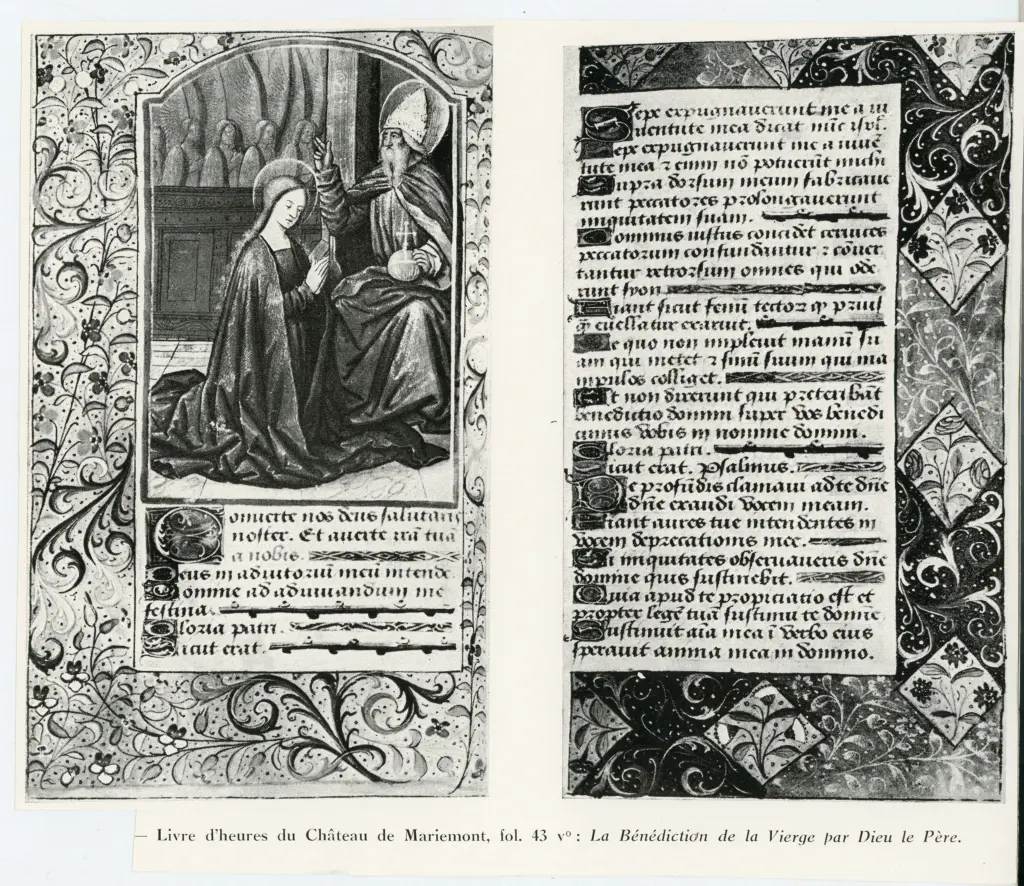 Conuerte nos deus salutaris
noster. Et auerte irā tuā
a nobis.
Deus in adiutoriū meū intende
Domine ad adiuuandum me
festina.
Gloria patri.
Sicut erat.
Sepe expugnauerunt me a iu
uentute mea dicat nūc isrl.
Sepe expugnauerunt me a iuuē
tute mea ⁊ enim nō potuerūt michi
Supra dorsum meum fabricaue
runt peccatores prolongauerunt
iniquitatem suam.
Dominus iustus concidet ceruices
peccatorum confundantur ⁊ cōuer
tantur retrorsum omnes qui ode
runt syon.
Fiant sicut fenū tectoꝝ qꝫ priusꝗ̄
euellatur exaruit.
De quo non impleuit manū su
am qui metet ⁊ sinū suum qui ma
nipulos colliget.
Et non dixerunt qui preteribāt
benedictio domini super vos benedi
ximus vobis in nomine domini.
Gloria patri.
Sicut erat. Psalmus.
De profūdis clamaui ad te dn̄e
dn̄e exaudi vocem meam.
Fiant aures tue intendentes in
vocem deprecationis mee.
Si iniquitates obseruaueris dn̄e
domine quis sustinebit.
Quia apud te propiciatio est et
propter legē tuā sustinui te domīe.
Sustinuit aīa mea ī verbo eius
sperauit anima mea in domino.
— Livre d'heures du Château de Mariemont, fol. 43 vº : La Bénédiction de la Vierge par Dieu le Père.